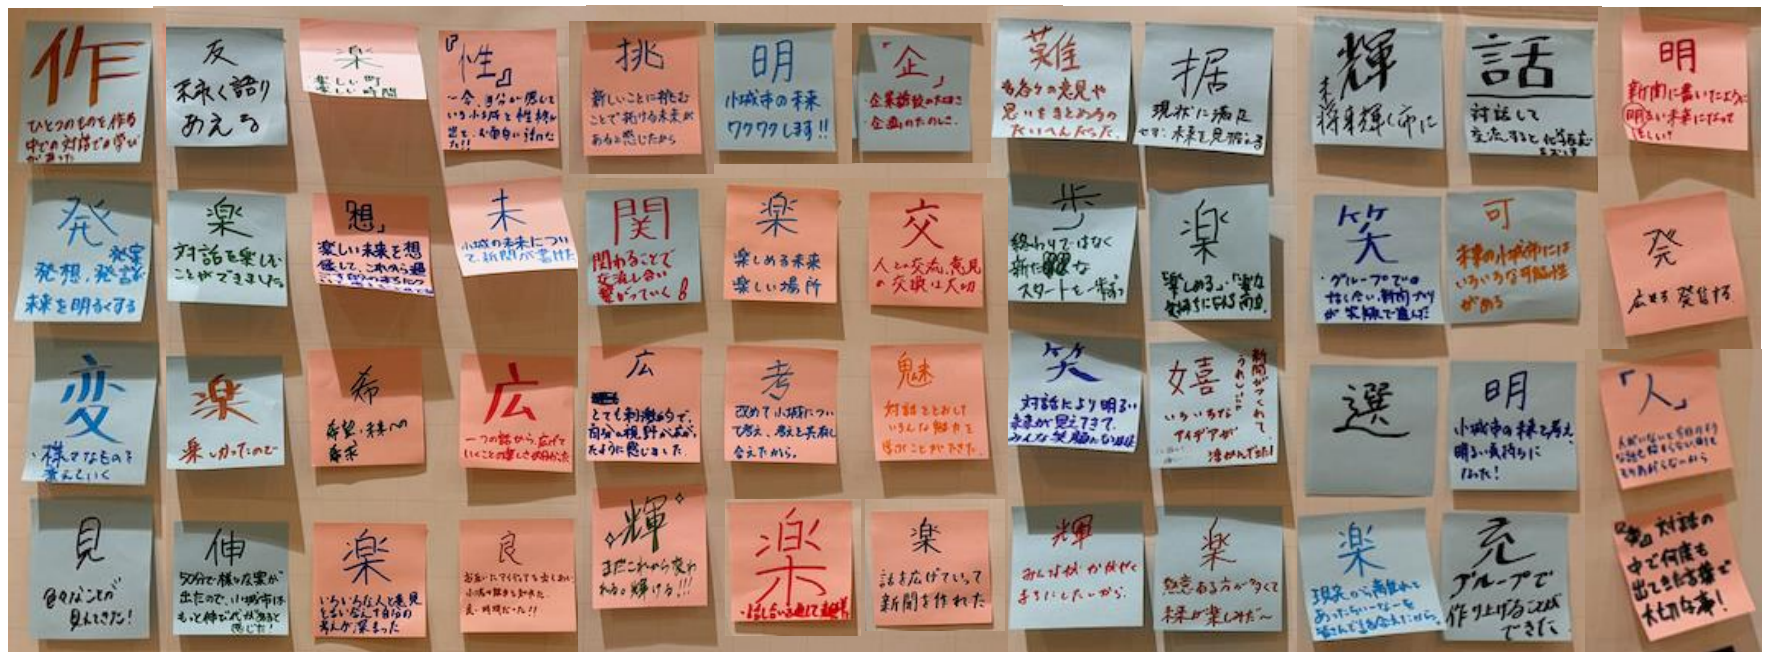 作
ひとつのものを作る
中での対話での学び
があった
友
末永く語り
あえる
楽
楽しい町
楽しい時間
『性』
挑
新しいことに挑む
ことで拓ける未来が
あると感じたから
明
小城市の未来
ワクワクします!!
「企」
企画のたのしさ
難
各々の意見や
思いをまとめるの
たいへんだった
据
現状に満足
せず、未来を見据える
輝
未
将来輝く市に
話
対話して
交流すると化学反応
明
新聞に書いたように
明るい未来になって
ほしい!
発
発案
発想、発議
未来を明るくする
楽
対話を楽しむ
ことができました
「想」
楽しい未来を想
未
小城の未来につい
て、新聞が書けた
関
関わることで
交流し合い
繋がっていく
楽
楽しめる未来
楽しい場所
交
人との交流、意見
の交換は大切
歩
終わりではなく
新たな
スタートを一歩
楽
「楽しめる」「楽な
気持ちになれる」両方
笑
・グループでの
話し合い、新聞づくり
が笑顔で進んだ
可
未来の小城市には
いろいろな可能性
がある
発
広める 発信する
変
様々なものを
変えていく
楽
楽しかったので
希
希望・未来への
希求
広
一つの話から、広げて
いくことの楽しさが分かった
広
とても刺激的で、
自分の視野が広がっ
たように感じました。
考
改めて小城につい
て考え、考えを共有し
合えたから。
魅
対話をとおして
いろんな魅力を
学ぶことができた。
笑
対話により明るい
未来が見えてきて、
みんな笑顔
嬉
新聞がつくれて
うれしい
いろいろな
アイデアが
浮かんできた!
選
明
小城市の未来を考え、
明るい気持ちに
なった!
「人」
見
色々なことが
見えてきた!
伸
50分で様々な案が
出たので、小城市は
もっと伸びしろがあると
感じた!
楽
いろいろな人と意見
考えが深まった
良
良い時間だった!!
輝
まだこれから変わ
れる。輝ける!!!
楽
楽
話を広げていって
新聞を作れた
輝
みんながかがやく
まちにしたいから。
楽
熱意ある方が多くて
未来が楽しみだ〜
楽
現実から離れて
あったらいいなーを
皆さんと話し合えたから。
充
グループで
作り上げることが
できた
対話の
中で何度も
出てきた言葉で
大切な事!